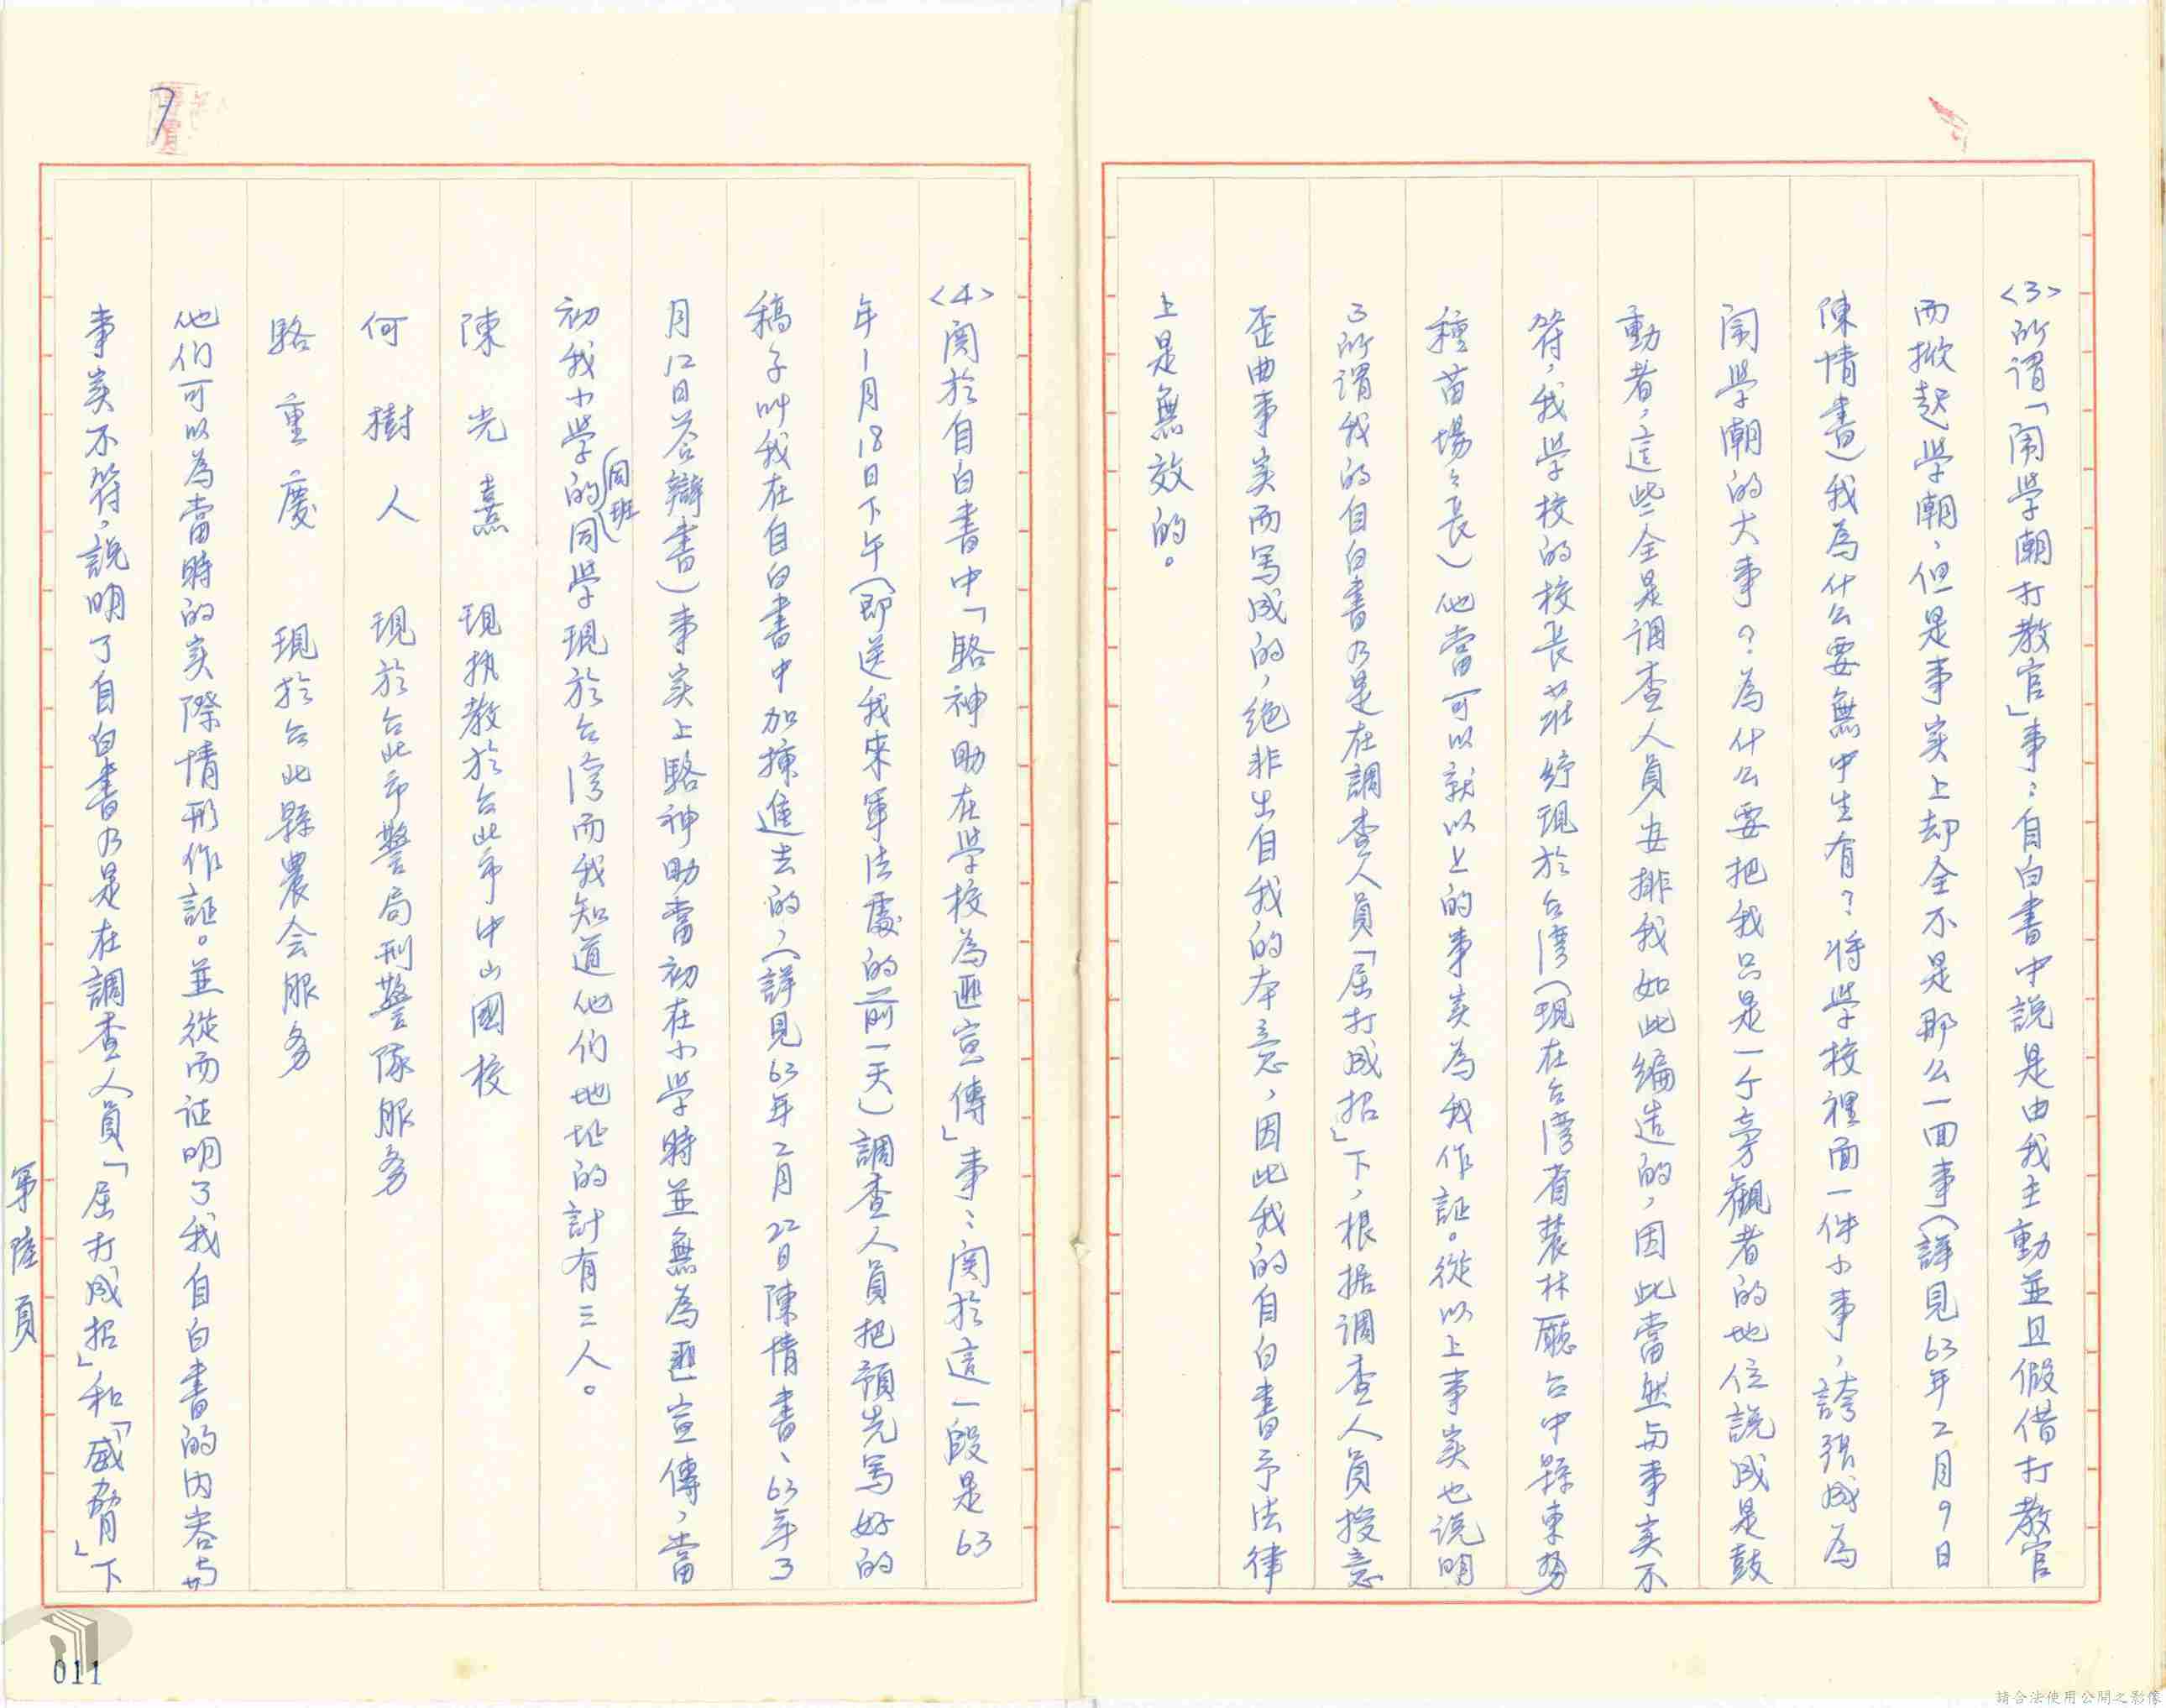 <3>所谓「闹学潮打教官」事：自白書中說是由我主動並且假借打教官
而掀起学潮，但是事实上却全不是那么一回事（詳見63年2月9日
陳情書）我為什么要無中生有？将学校裡面一件小事，誇張成為
闹学潮的大事？為什么要把我只是一个旁觀者的地位說成是鼓
動者，這些全是调查人員安排我如此編造的，因此當然与事实不
符，我学校的校長莊紓現於台湾（現在台湾省農林廳台中縣東势
種苗場々長）他當可以就以上的事实為我作証。從以上事实也说明
了所谓我的自白書乃是在調查人員「屈打成招」下，根据调查人員授意
歪曲事实而写成的，绝非出自我的本意，因此我的自白書予法律
上是無效的。
<4>関於自白書中「駱神助在学校為匪宣傳」事：関於這一段是63
年1月18日下午（即送我来军法處的前一天）調查人員把預先写好的
稿子叫我在自白書中加揀進去的，（詳見63年2月22日陳情書、63年3
月12日答辯書）事实上駱神助當初在小学時並無為匪宣傳，當
初我小学的（同班）同学現於台湾而我知道他们地址的計有三人。
陳光熹　現执教於台北市中山國校
何樹人　現於台北市警局刑警隊服务
駱重慶　現於台北縣農会服务
他们可以為當時的实際情形作証。並從而证明了我自白書的内容与
事实不符，説明了自白書乃是在調查人員「屈打成招」和「威脅」下
第陸頁
011
請合法使用公開之影像